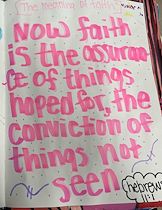 The meaning of faith
Now faith
is the assuran
ce of things
hoped for, the
conviction of
things not
seen
hebrews
11:1